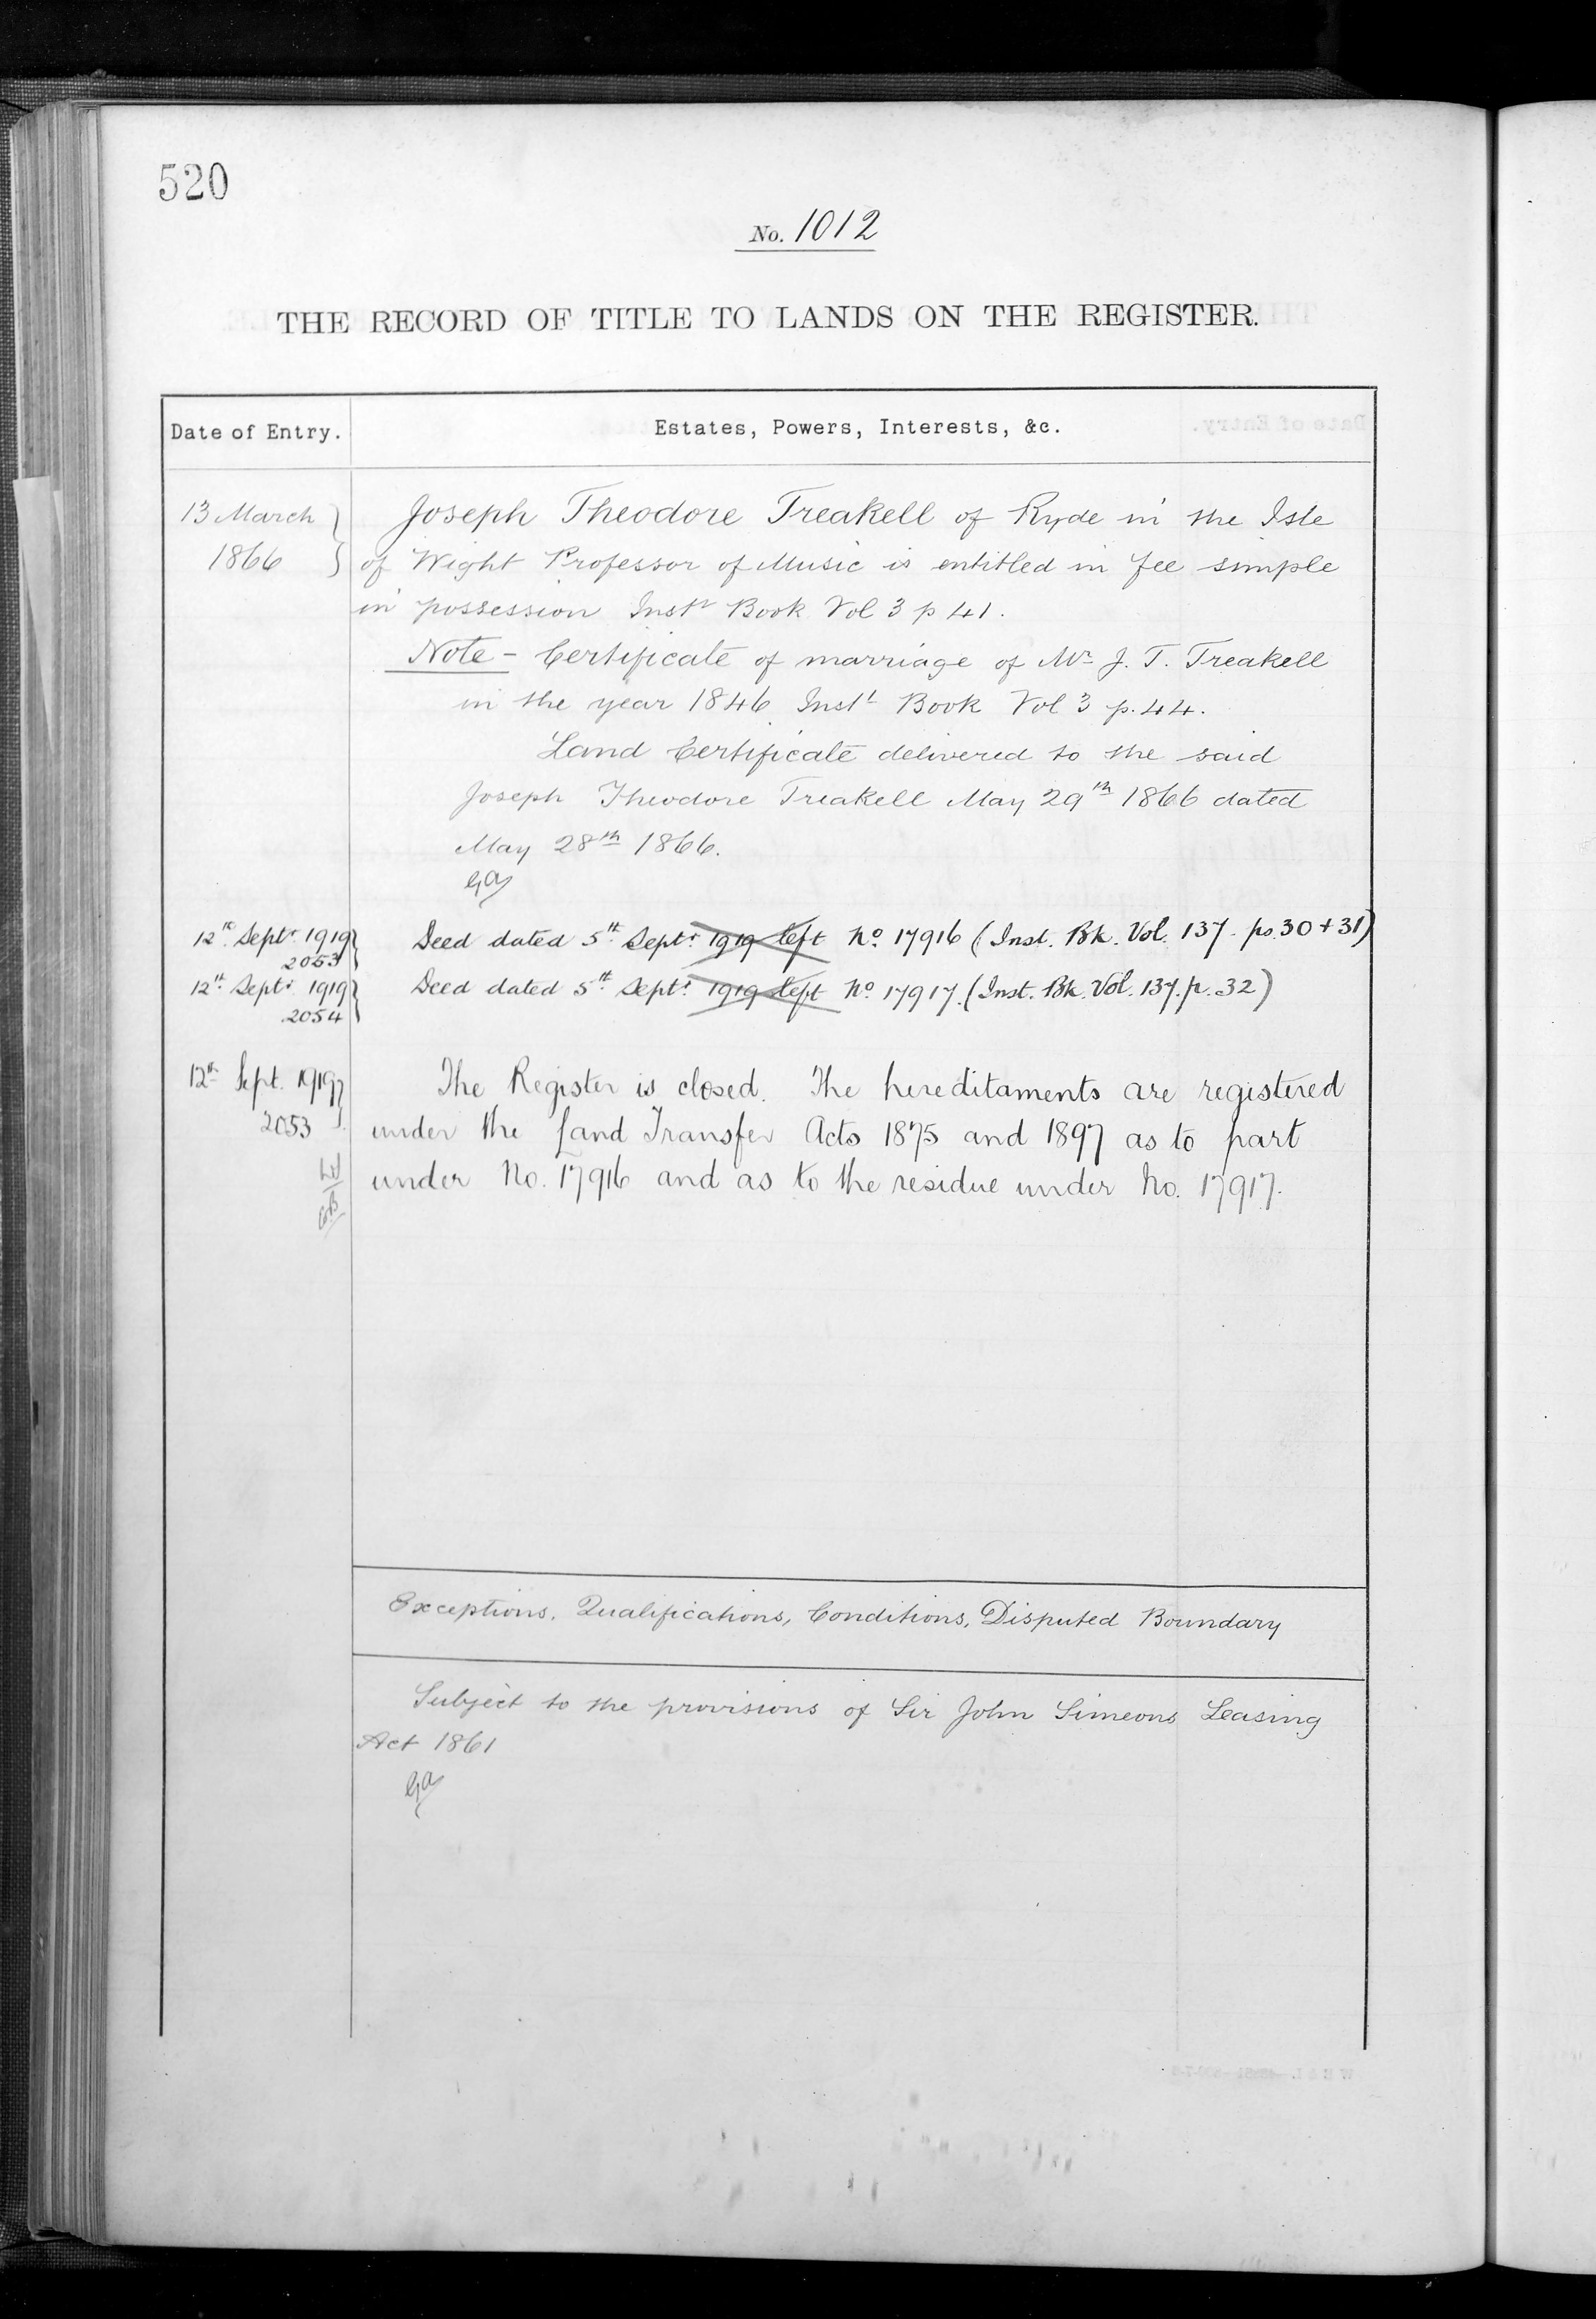 520
No. 1012
THE RECORD OF TITLE TO LANDS ON THE REGISTER.
Date of Entry. Estates, Powers, Interests, &c.
13 March Joseph Theodore Treakell of Ryde in the Isle
1866 of Wight Professor of Music is entitled in fee simple
in possession Inst^t Book Vol 3 p 41.
Note – Certificate of marriage of Mr J. T. Treakell
in the year 1846 Inst^t Book Vol 3 p. 44.
Land Certificate delivered to the said
Joseph Theodore Treakell May 29th 1866 dated
May 28th 1866.
12th Septr. 1919 Deed dated 5th Septr. 1919 left No. 17916 (Inst. Bk. Vol. 137. ps. 30 + 31)
2053
12th Septr. 1919 Deed dated 5th Septr. 1919 left No. 17917. (Inst. Bk. Vol. 137. p. 32)
2054
12th Sept. 1919 The Register is closed. The hereditaments are registered
2053 under the Land Transfer Acts 1875 and 1897 as to part
under No. 17916 and as to the residue under No. 17917.
Exceptions, Qualifications, Conditions, Disputed Boundary
Subject to the provisions of Sir John Simeons Leasing
Act 1861